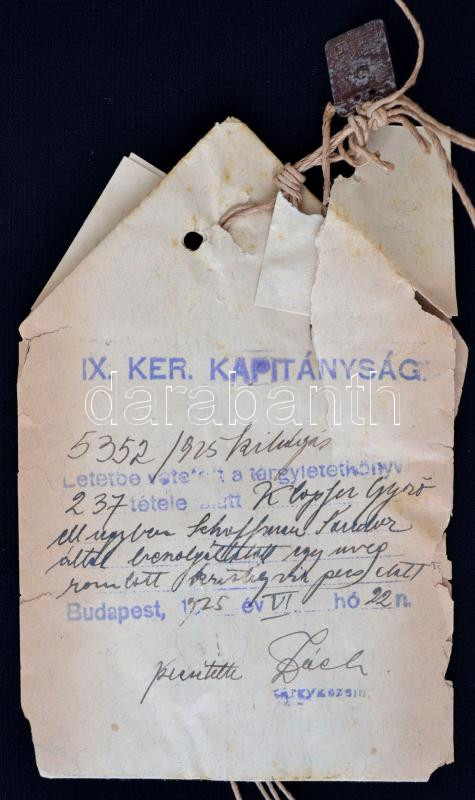 IX. KER. KAPITÁNYSÁG.
darabanth
5352 /1925 kihágás
Letétbe vétetett a tárgyletétkönyv
237 tétele alatt Klopfer Győző
ell. ügyben Schoffman Sandor
által egy üveg
romlott
Budapest, 1925 év VI hó 22 n.